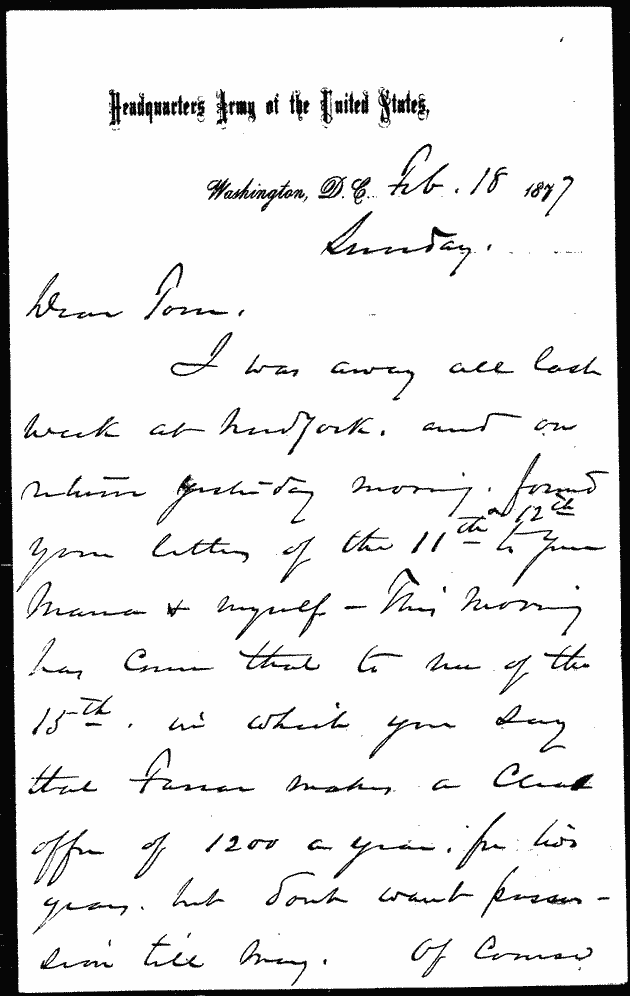 Headquarters Army of the United States,
Washington, D.C. Feb. 18 1877
Sunday.
Dear Tom.
I was away all last
week at New York. and on
return yesterday morning. found
your letters of the 11th & 12th to your
Mama & myself - This morning
has come that to me of the
15th. in which you say
that Farrar makes a clear
offer of 1200 a year. for two
years. but dont want posses-
sion till May. Of course